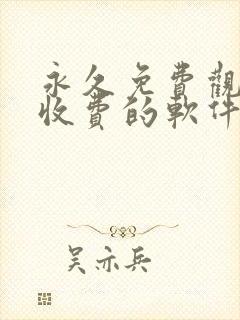 永久免費觀
收費的軟件
吴亦兵